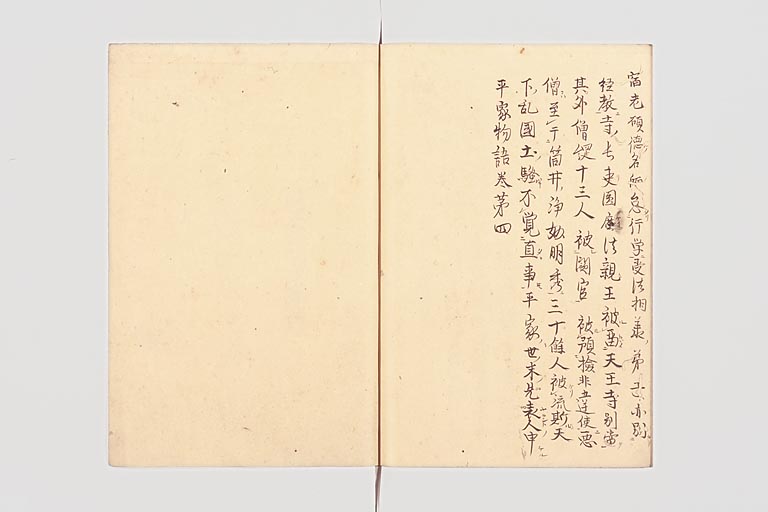 宿老碩徳名師怠行学受法相兼弟子亦別
経教寺長吏園慶法親王被留天王寺別当
其外僧綱十三人被闕官被預検非違使悪
僧至于筒井浄妙明秀三十餘人被流斯天
下乱國土騒不覚直事平家世末先表人申
平家物語巻第四